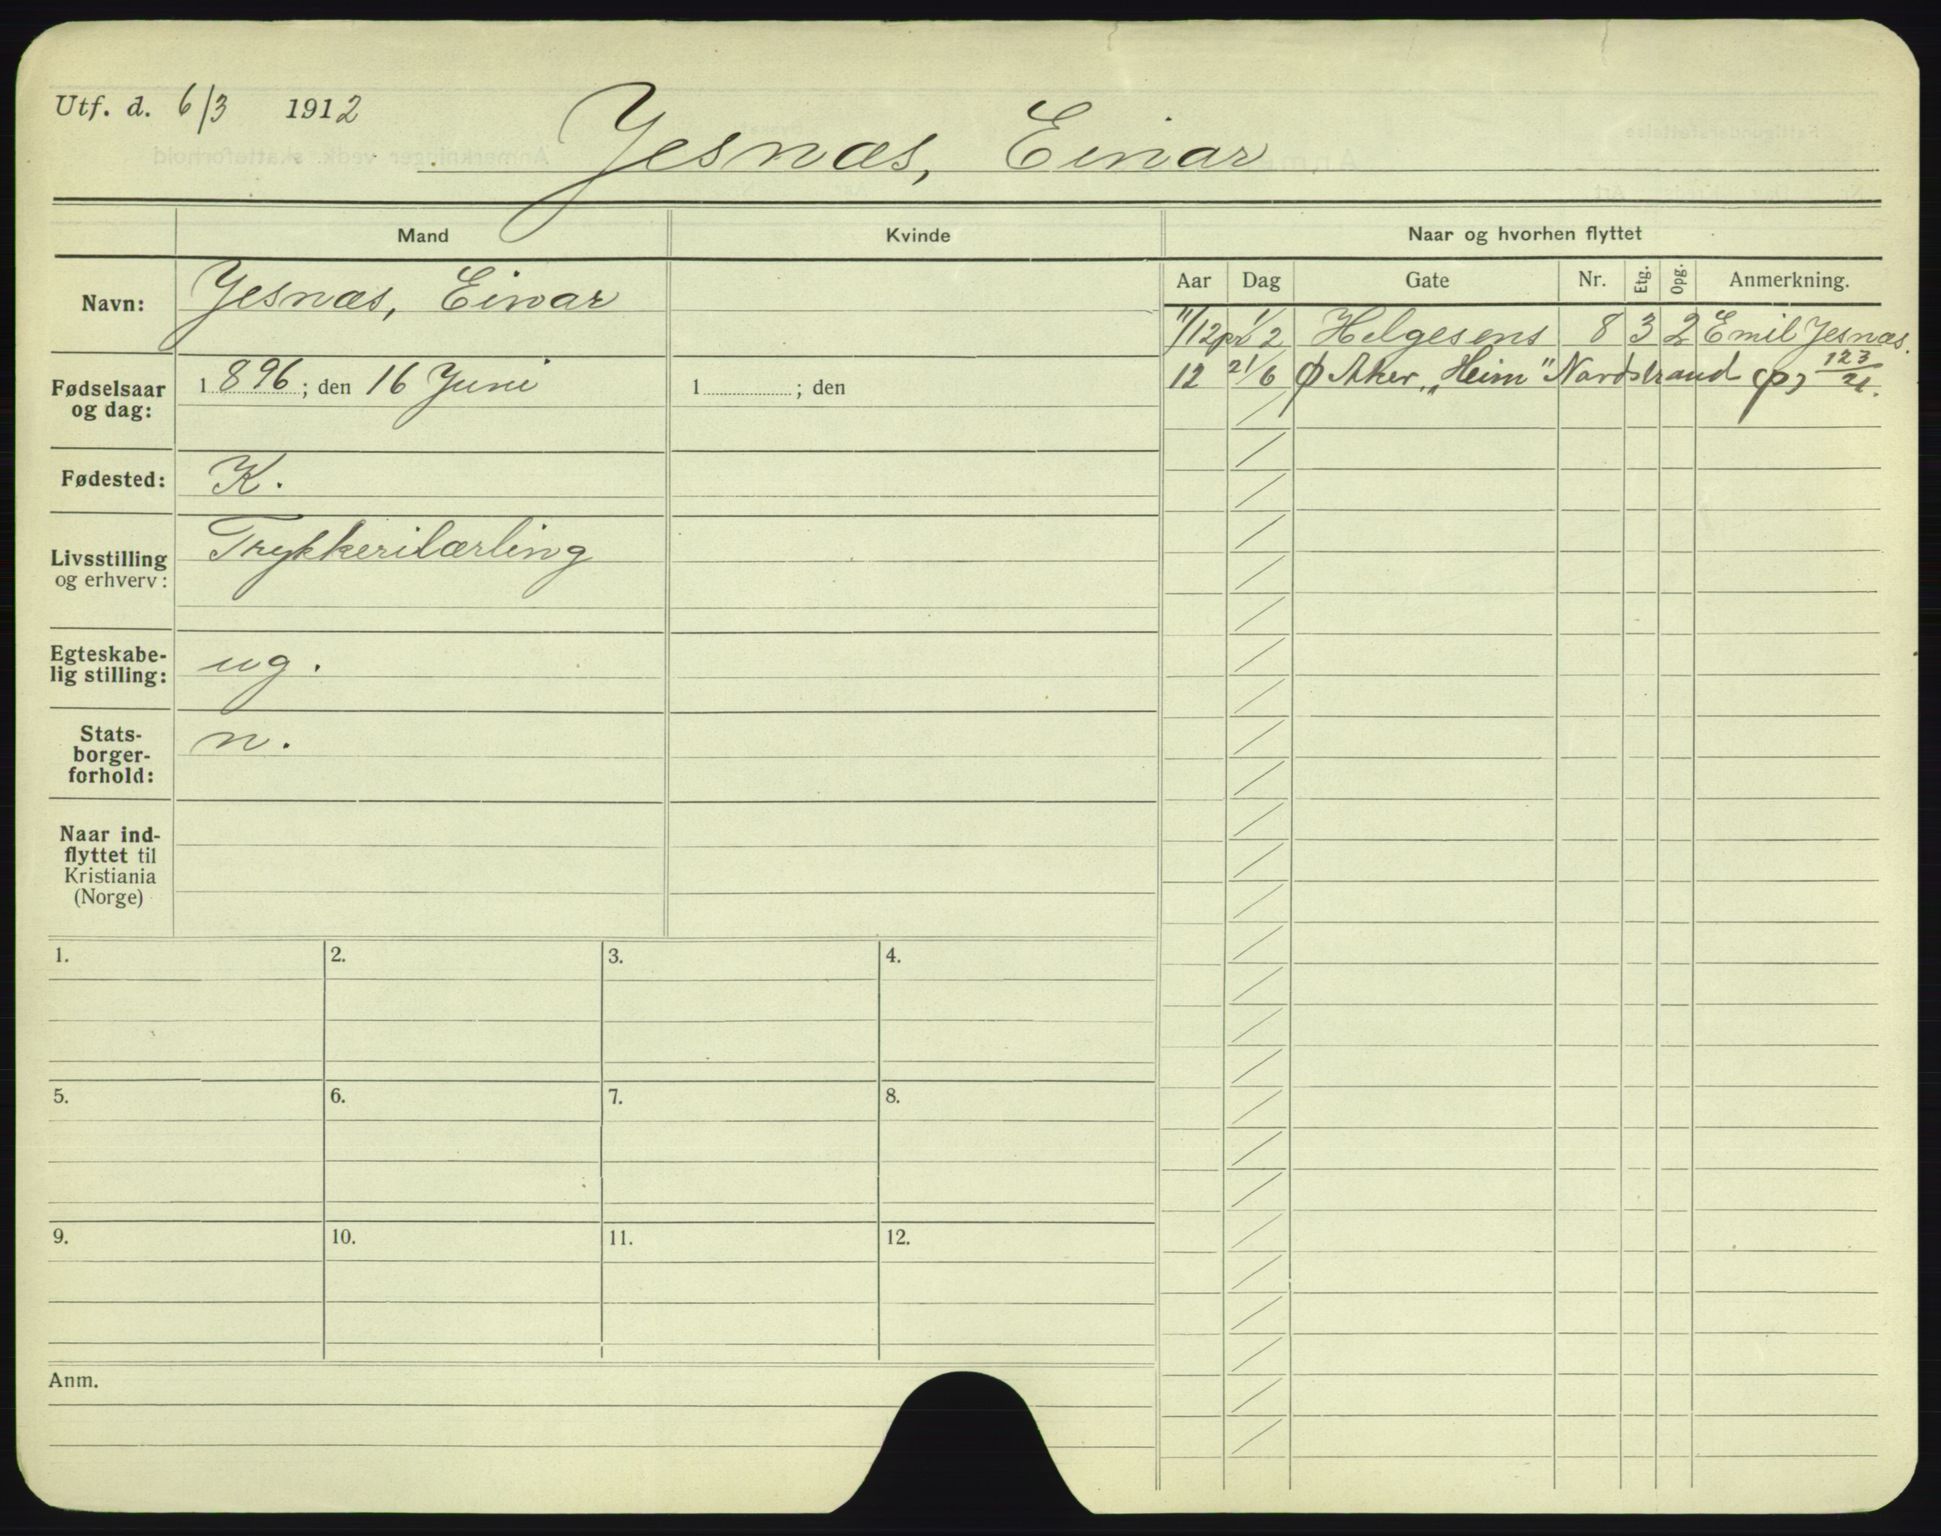 Utf. d. 6/3 1912
Jesnæs, Einar
Mand Kvinde Naar og hvorhen flyttet
Aar Dag Gate Nr. Etg. Opg. Anmerkning.
Navn: Jesnæs, Einar
11/12 pr 1/2 Helgesens 8 3 2 Emil Jesnæs.
12 21/6 Ø Aker, „Heim" Nordstrand 123/21.
Fødselsaar
og dag: 1896; den 16 Juni 1 ; den
Fødested: K.
Livsstilling
og erhverv: Trykkerilærling
Egteskabe-
lig stilling: ug.
Stats-
borger-
forhold: n.
Naar ind-
flyttet til
Kristiania
(Norge)
1. 2. 3. 4.
5. 6. 7. 8.
9. 10. 11. 12.
Anm.